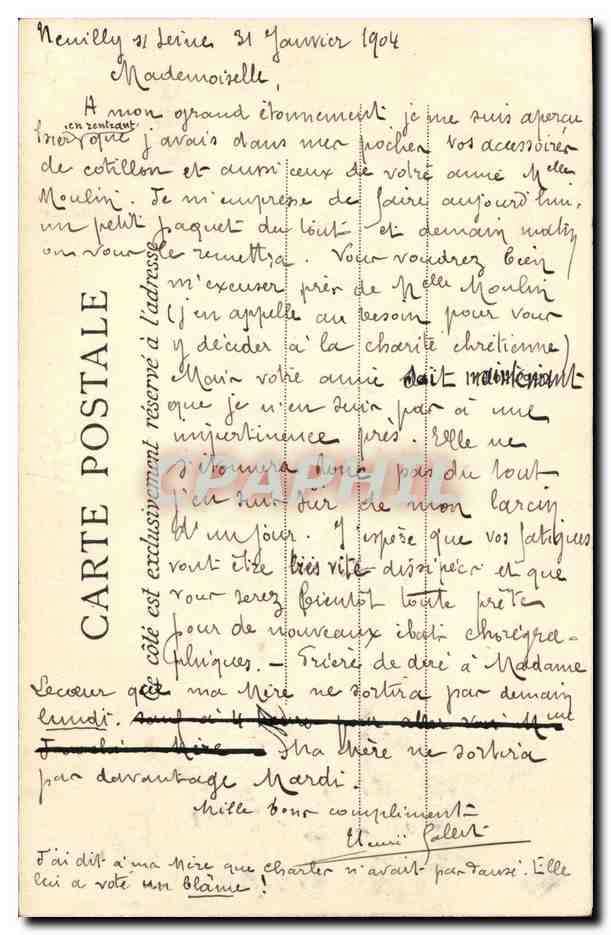 Neuilly s/ Seine 31 Janvier 1904
Mademoiselle,
A mon grand étonnement je me suis aperçu
hier en rentrant que j'avais dans mes poches vos accessoires
de cotillon et aussi ceux de votre amie Melle
Moulin. Je m'empresse de faire aujourd'hui
un petit paquet du tout et demain matin
on vous le remettra. Vous voudrez bien
m'excuser près de Melle Moulin
(j'en appelle au besoin pour vous
y décider à la charité chrétienne)
Mais votre amie sait maintenant
que je n'en suis pas à une
impertinence près. Elle ne
s'étonnera donc pas du tout
j'en suis sûr de mon larcin
d'un jour. J'espère que vos fatigues
vont être très vite dissipées et que
vous serez bientôt toute prête
pour de nouveaux ébats chorégra-
phiques. - Prière de dire à Madame
Lecœur que ma Mère ne sortira pas demain
lundi.
Ma Mère ne sortira
pas davantage Mardi.
Mille bons compliments
Henri
J'ai dit à ma Mère que Charles n'avait pas dansé. Elle
lui a voté un blâme !
CARTE POSTALE
Ce côté est exclusivement réservé à l'adresse
CPAPHIL